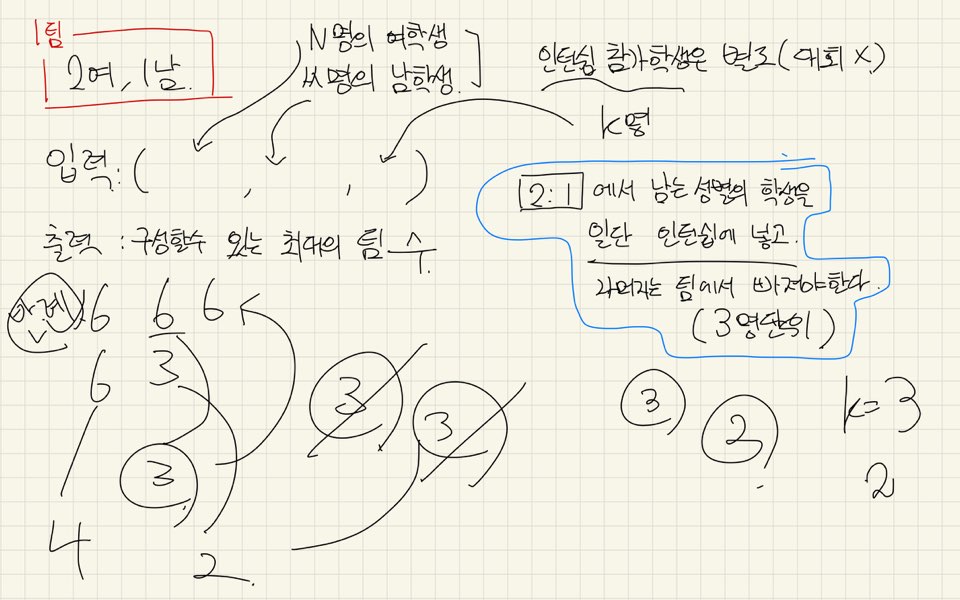 1팀
2여, 1남.
N명의 여학생
M명의 남학생.
인턴쉽 참가학생은 별도(대회 X.)
k명
입력:( , , )
2:1 에서 남는 성별의 학생을
일단 인턴쉽에 넣고.
나머지는 팀에서 빠져야한다.
(3명단위)
출력 : 구성할수 있는 최대의 팀 수.
반례) 6 6 6
6 3
3
3
3
3
2
k=3
2
4 2.